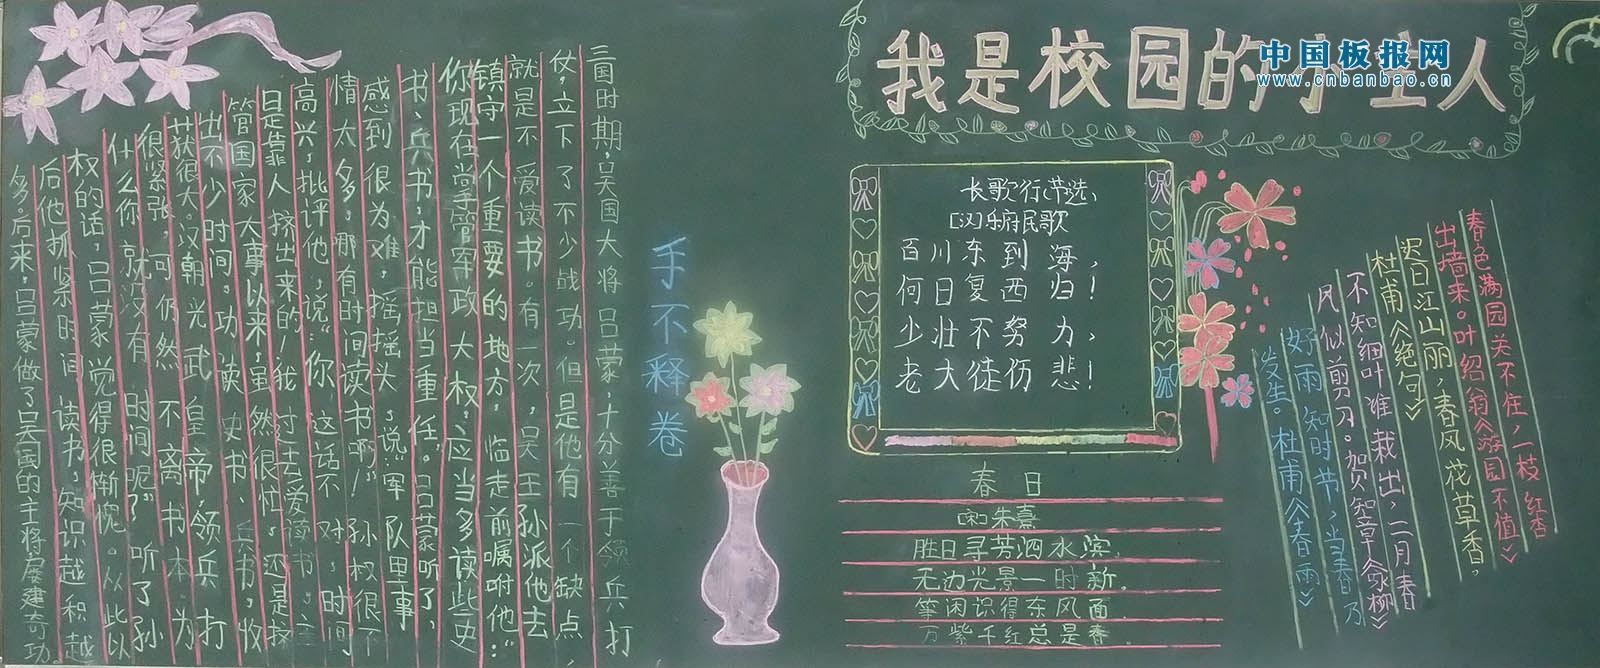 我是校园的小主人
中国板报网
www.cnbanbao.cn
手不释卷
三国时期,吴国大将吕蒙,十分善于领兵打
仗,立下了不少战功。但是他有一个缺点,
就是不爱读书。有一次,吴王孙派他去
镇守一个重要的地方,临走前嘱咐他:“
你现在掌管军政大权,应当多读些史
书、兵书,才能担当重任。”吕蒙听了,
感到很为难,摇摇头,说:“军队里事
情太多,哪有时间读书啊!”孙权很不
高兴,批评他,说:“你这话不对,时间
是靠人挤出来的!我过去爱读书,
管国家大事以来,虽然很忙,还是挤
出不少时间,功读史书、兵书,收
获很大。汉朝光武皇帝,领兵打
很紧张,可仍然不离书本,为
什么你就没有时间呢?”听了孙
权的话,吕蒙觉得很惭愧。从此以
后他抓紧时间读书,知识越积越
多。后来,吕蒙做了吴国的主将,屡建奇功。
长歌行(节选)
[汉]乐府民歌
百川东到海,
何日复西归!
少壮不努力,
老大徒伤悲!
春日
朱熹
胜日寻芳泗水滨,
无边光景一时新。
等闲识得东风面,
万紫千红总是春。
春色满园关不住,一枝红杏
出墙来。叶绍翁《游园不值》
迟日江山丽,春风花草香,
杜甫《绝句》
不知细叶谁裁出,二月春
风似剪刀。贺知章《咏柳》
好雨知时节,当春乃
发生。杜甫《春雨》